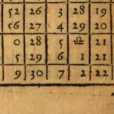 52 26 3 28 19
56 27 4 29 20
0 28 5 ♎ 21
5 29 6 1 21
9 30 7 2 22